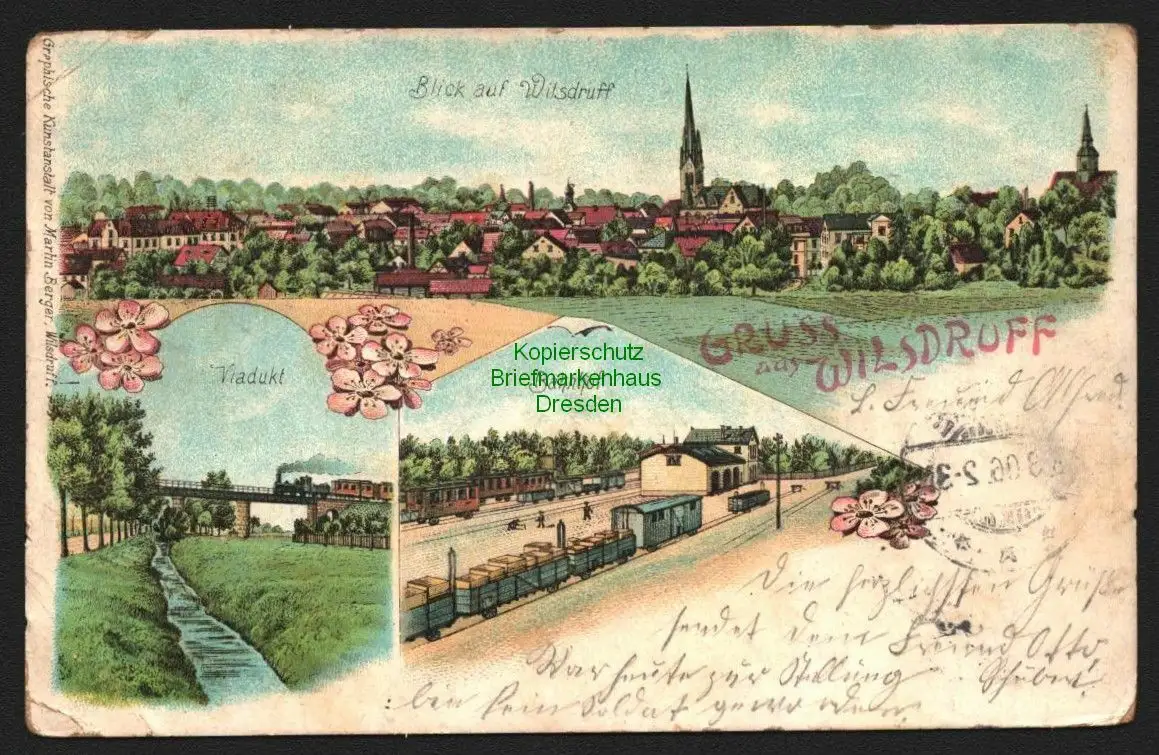 Blick auf Wilsdruff
Graphische Kunstanstalt von Martin Berger, Wilsdruff.
GRUSS
aus WILSDRUFF
Viadukt
Kopierschutz
Briefmarkenhaus
Dresden
Bahnhof
L. Freund Alfred.
06. 2-3
Die herzlichsten Grüße
sendet dein Freund Otto
War heute zur Stellung Schubert
ben kein Soldat geworden